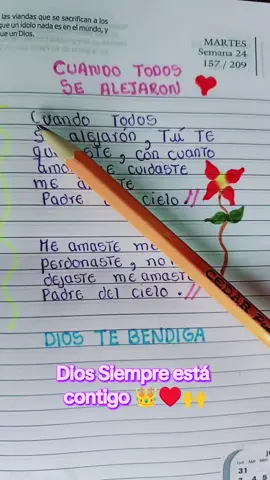 las viandas que se sacrifican a los
que un ídolo nada es en el mundo, y
ue un Dios.
MARTES
Semana 24
157 / 209
CUANDO TODOS
SE ALEJARON
Cuando Todos
alejarón, Tú TE
con cuanto
cuidaste
me
Padre cielo.//
Me amaste me
perdonaste, no
dejaste me amast
Padre del cielo.//
DIOS TE BENDIGA
Dios Siempre está
contigo 👑♥️🙌
CEDAR
31